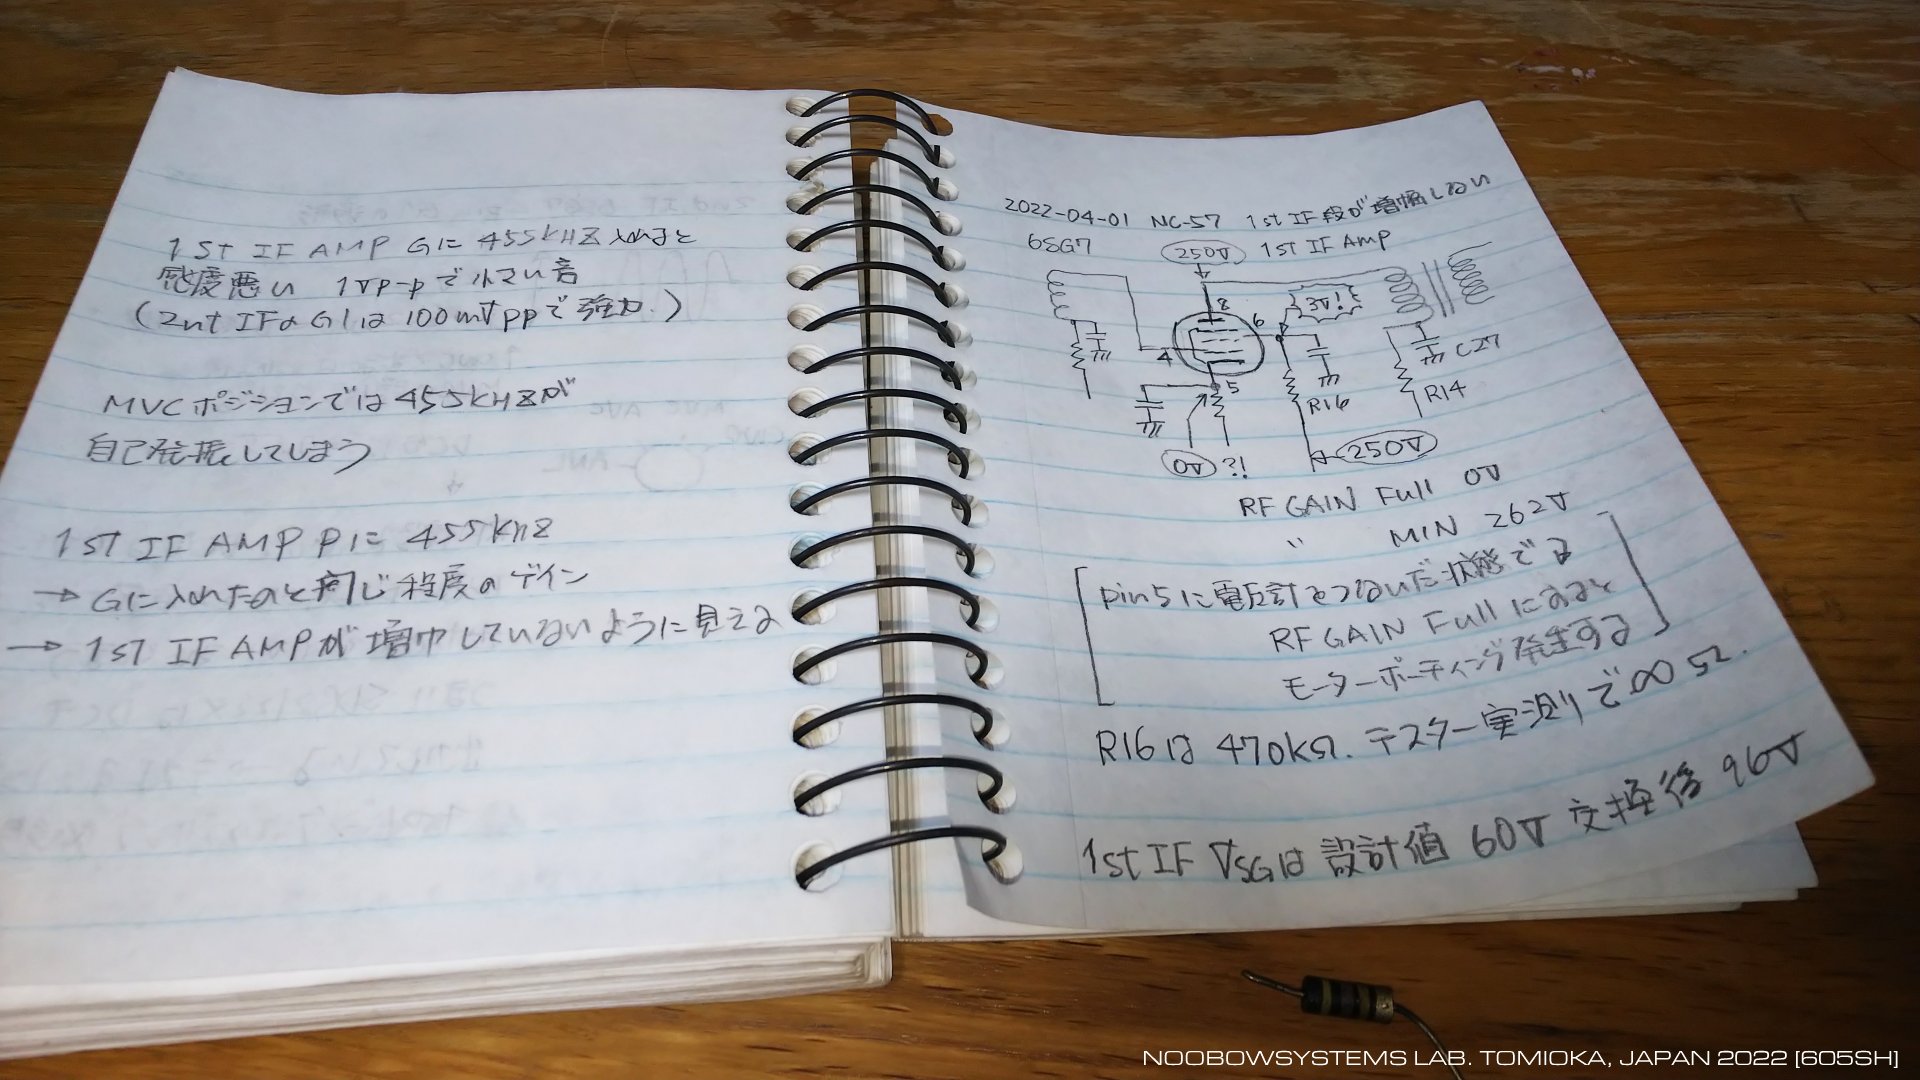 1ST IF AMP Gに 455kHz 入れると
感度悪い 1Vp-pで小さい音
(2nt IFのG1は100mVppで強力.)
MVCポジションでは455kHzが
自己発振してしまう
1st IF AMP Pに 455kHz
→ Gに入れたのと同じ程度のゲイン
→ 1st IF AMPが増巾していないように見える
2022-04-01 NC-57 1st IF段が増幅しない
6SG7 250V 1st IF Amp
8 3V!
6
4 C27
5 R16 R14
0V ?! 250V
RF GAIN Full 0V
〃 MIN 262V
pin5に電圧計をつないだ状態で
RF GAIN Fullにすると
モーターボーティング発生する
R16は470kΩ. テスター実測で∞Ω.
1st IF VSGは設計値 60V 交換後 96V
NOOBOWSYSTEMS LAB. TOMIOKA, JAPAN 2022 [605SH]